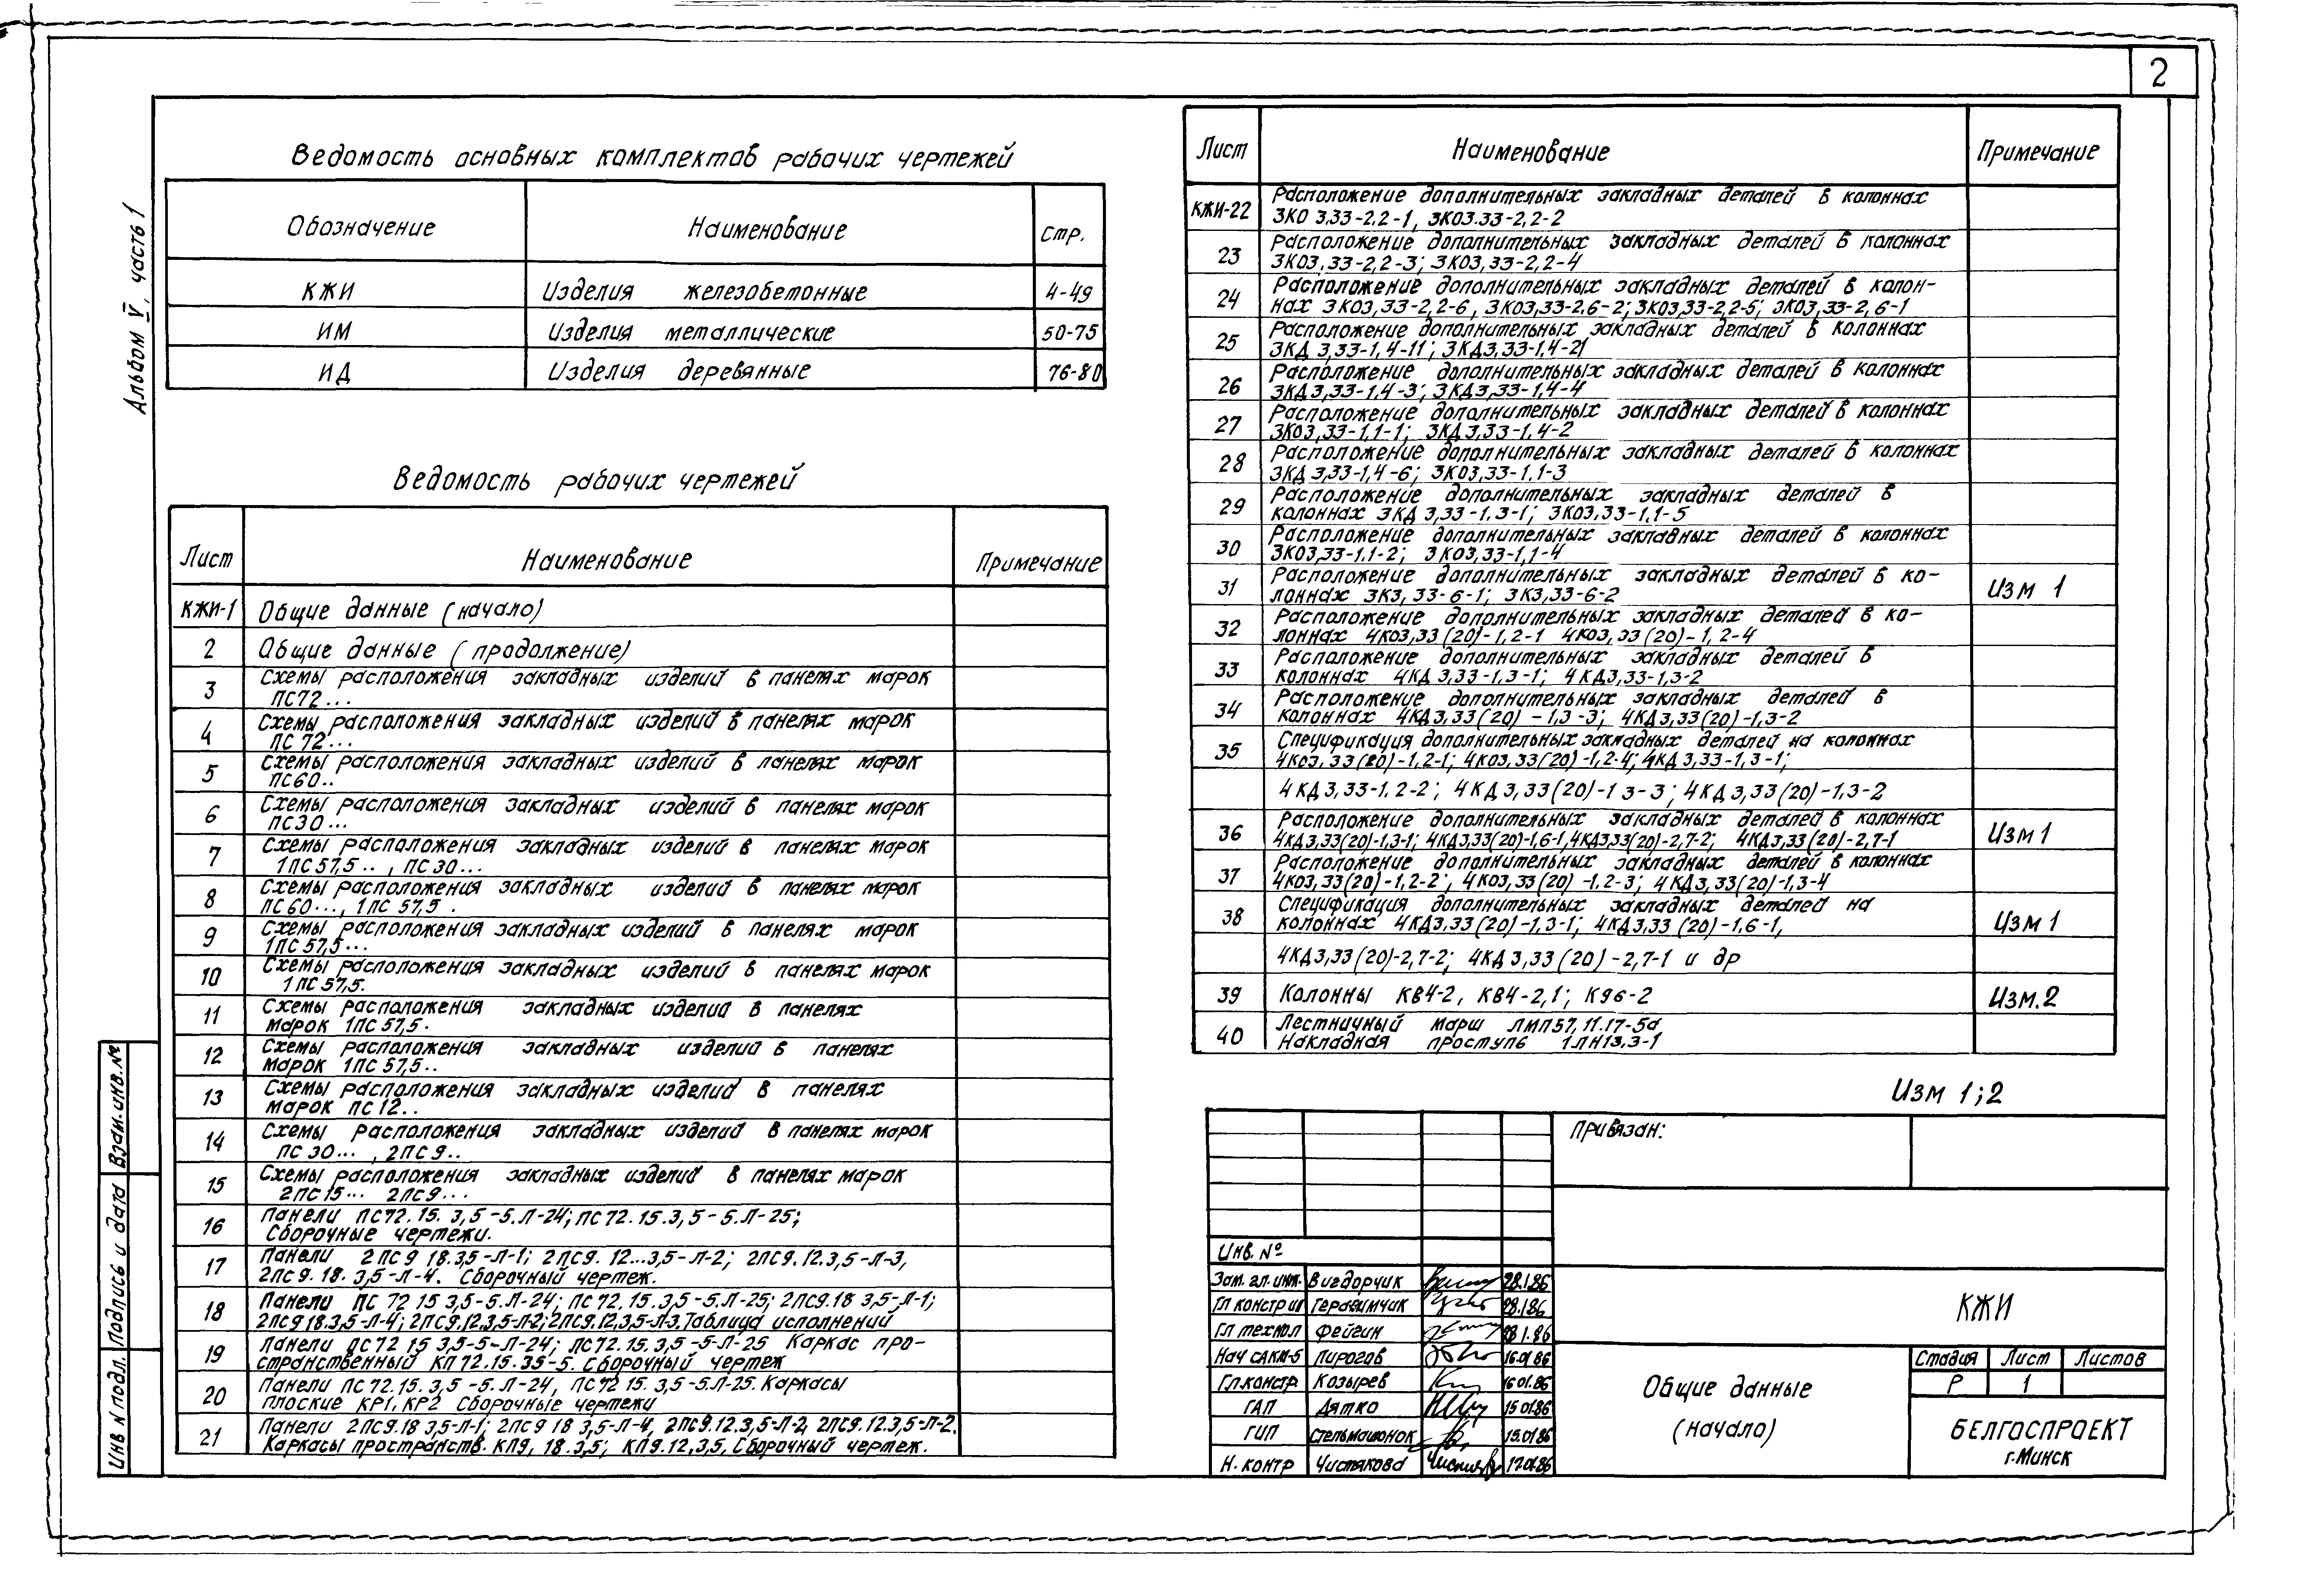 2
Альбом V, часть 1
Ведомость основных комплектов рабочих чертежей
Обозначение Наименование Стр.
КЖИ Изделия железобетонные 4-49
ИМ Изделия металлические 50-75
ИД Изделия деревянные 76-80
Ведомость рабочих чертежей
Лист Наименование Примечание
КЖИ-1 Общие данные (начало)
2 Общие данные (продолжение)
3 Схемы расположения закладных изделий в панелях марок
ПС72...
4 Схемы расположения закладных изделий в панелях марок
ПС 72...
5 Схемы расположения закладных изделий в панелях марок
ПС60..
6 Схемы расположения закладных изделий в панелях марок
ПС30...
7 Схемы расположения закладных изделий в панелях марок
1ПС57,5.. , ПС30...
8 Схемы расположения закладных изделий в панелях марок
ПС60..., 1ПС 57,5 .
9 Схемы расположения закладных изделий в панелях марок
1ПС57,5...
10 Схемы расположения закладных изделий в панелях марок
1ПС57,5.
11 Схемы расположения закладных изделий в панелях
марок 1ПС57,5.
12 Схемы расположения закладных изделий в панелях
марок 1ПС57,5..
13 Схемы расположения закладных изделий в панелях
марок ПС12..
14 Схемы расположения закладных изделий в панелях марок
ПС 30... , 2ПС9..
15 Схемы расположения закладных изделий в панелях марок
2ПС15... 2ПС9...
16 Панели ПС72.15.3,5-5.Л-24; ПС72.15.3,5-5.Л-25;
Сборочные чертежи.
17 Панели 2ПС9 18.3,5-Л-1; 2ПС9.12...3,5-Л-2; 2ПС9.12.3,5-Л-3,
2ПС9.18.3,5-Л-4. Сборочный чертеж.
18 Панели ПС 72 15 3,5-5.Л-24; ПС72.15.3,5-5.Л-25; 2ПС9.18 3,5-Л-1;
2ПС9 18.3,5-Л-4; 2ПС9.12.3,5-Л-2; 2ПС9.12.3,5-Л-3. Таблица исполнений
19 Панели ПС72 15 3,5-5-Л-24; ПС72.15.3,5-5-Л-25 Каркас про-
странственный КП72.15.35-5. Сборочный чертеж
20 Панели ПС72.15.3,5-5.Л-24, ПС72 15.3,5-5.Л-25. Каркасы
плоские КР1, КР2 Сборочные чертежи
21 Панели 2ПС9.18 3,5-Л-1; 2ПС9 18 3,5-Л-4, 2ПС9.12.3,5-Л-2, 2ПС9.12.3,5-Л-2.
Каркасы пространств. КП9, 18.3,5; КП9.12,3,5. Сборочный чертеж.
Лист Наименование Примечание
КЖИ-22 Расположение дополнительных закладных деталей в колоннах
3КО 3.33-2,2-1, 3КО3.33-2,2-2
23 Расположение дополнительных закладных деталей в колоннах
3КО3,33-2,2-3; 3КО3,33-2,2-4
24 Расположение дополнительных закладных деталей в колон-
нах 3КО3,33-2,2-6, 3КО3,33-2,6-2; 3КО3,33-2,2-5; 3КО3,33-2,6-1
25 Расположение дополнительных закладных деталей в колоннах
3КД 3,33-1,4-11; 3КД3,33-1,4-21
26 Расположение дополнительных закладных деталей в колоннах
3КД3,33-1,4-3; 3КД3,33-1,4-4
27 Расположение дополнительных закладных деталей в колоннах
3КО3,33-1,1-1; 3КД3,33-1,4-2
28 Расположение дополнительных закладных деталей в колоннах
3КД 3,33-1,4-6; 3КО3,33-1,1-3
29 Расположение дополнительных закладных деталей в
колоннах 3КД 3,33-1,3-1; 3КО3,33-1,1-5
30 Расположение дополнительных закладных деталей в колоннах
3КО3,33-1,1-2; 3КО3,33-1,1-4
31 Расположение дополнительных закладных деталей в ко- Изм 1
лоннах 3К3,33-6-1; 3К3,33-6-2
32 Расположение дополнительных закладных деталей в ко-
лоннах 4КО3,33(20)-1,2-1 4КО3,33(20)-1,2-4
33 Расположение дополнительных закладных деталей в
колоннах 4КД 3,33-1,3-1; 4КД3,33-1,3-2
34 Расположение дополнительных закладных деталей в
колоннах 4КД3,33(20)-1,3-3; 4КД3,33(20)-1,3-2
35 Спецификация дополнительных закладных деталей на колоннах
4КО3,33(20)-1,2-1; 4КО3,33(20)-1,2-4; 4КД3,33-1,3-1;
4КД3,33-1,2-2; 4КД3,33(20)-1 3-3; 4КД3,33(20)-1,3-2
36 Расположение дополнительных закладных деталей в колоннах Изм 1
4КД3,33(20)-1,3-1; 4КД3,33(20)-1,6-1, 4КД3,33(20)-2,7-2; 4КД3,33(20)-2,7-1
37 Расположение дополнительных закладных деталей в колоннах
4КО3,33(20)-1,2-2; 4КО3,33(20)-1,2-3; 4КД3,33(20)-1,3-4
38 Спецификация дополнительных закладных деталей на Изм 1
колоннах 4КД3,33(20)-1,3-1; 4КД3,33(20)-1,6-1,
4КД3,33(20)-2,7-2; 4КД3,33(20)-2,7-1 и др
39 Колонны КВ4-2, КВ4-2,1; К96-2 Изм.2
40 Лестничный марш ЛМП57,11.17-5а
Накладная проступь 1ЛН13,3-1
Изм 1;2
Привязан:
Инв. №
Зам. гл. инж. Вигдорчик 28.1.86
Гл констр ип Геравимчик 28.1.86
Гл технол Фейгин 28 1.86
Нач САКМ-5 Пирогов 16.01 86
Гл.констр. Козырев 16 01.86
ГАП Дятко 15 01.86
ГИП Стельмашонок 15.01 86
Н. контр Чистякова 17.01.86
КЖИ
Общие данные
(начало)
Стадия Лист Листов
Р 1
БЕЛГОСПРОЕКТ
г.Минск
Взам. инв. №
Подпись и дата
Инв N подл.